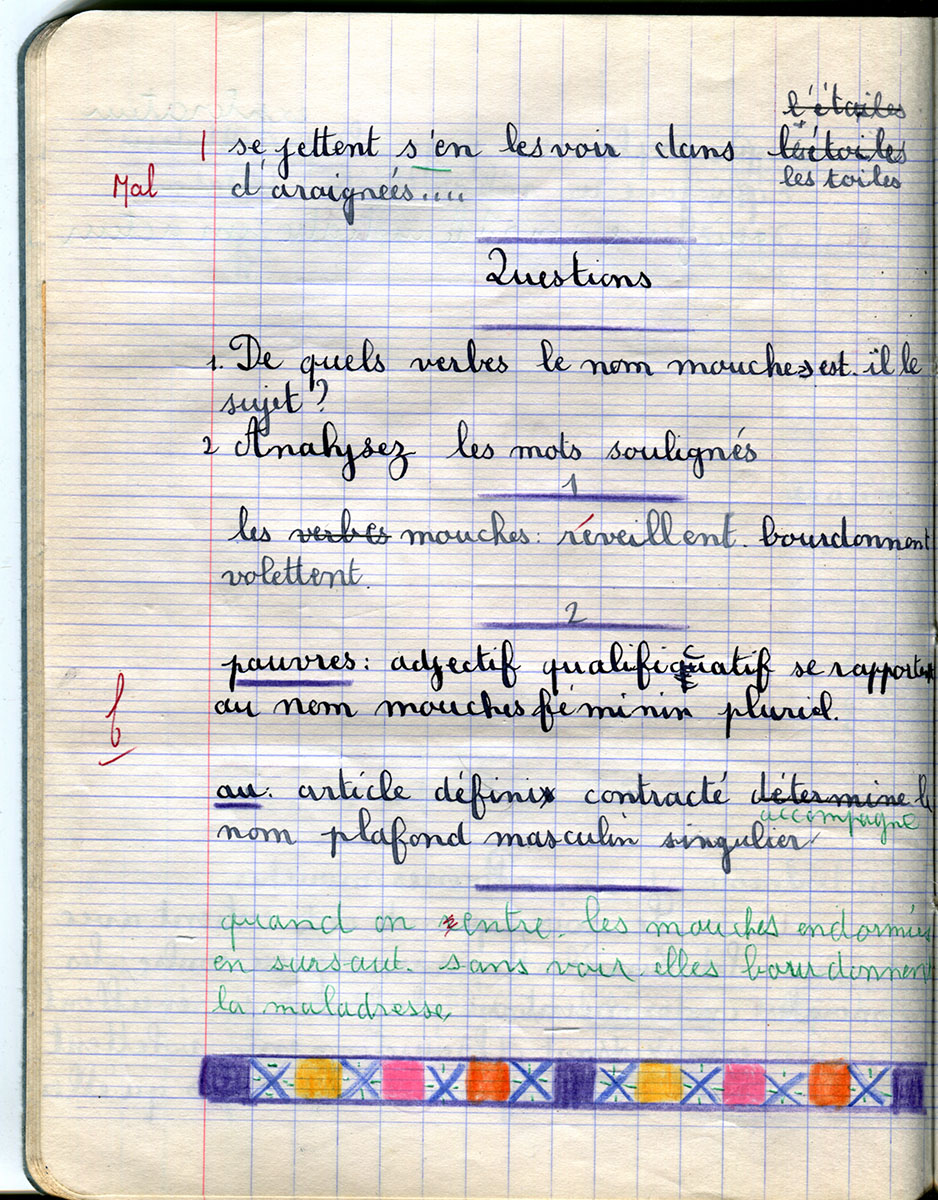 l'étoiles
1 se jettent s'en les voir dans les étoiles
Mal d'araignées.... les toiles
Questions
1. De quels verbes le nom mouches est-il le
sujet ?
2 Analysez les mots soulignés
1
les verbes mouches : réveillent. bourdonnent
volettent.
2
pauvres : adjectif qualificatif se rapporte
au nom mouches féminin pluriel.
au : article défini contracté détermine le
accompagne
nom plafond masculin singulier
quand on rentre. les mouches endormies
en sursaut. sans voir elles bourdonnent
la maladresse